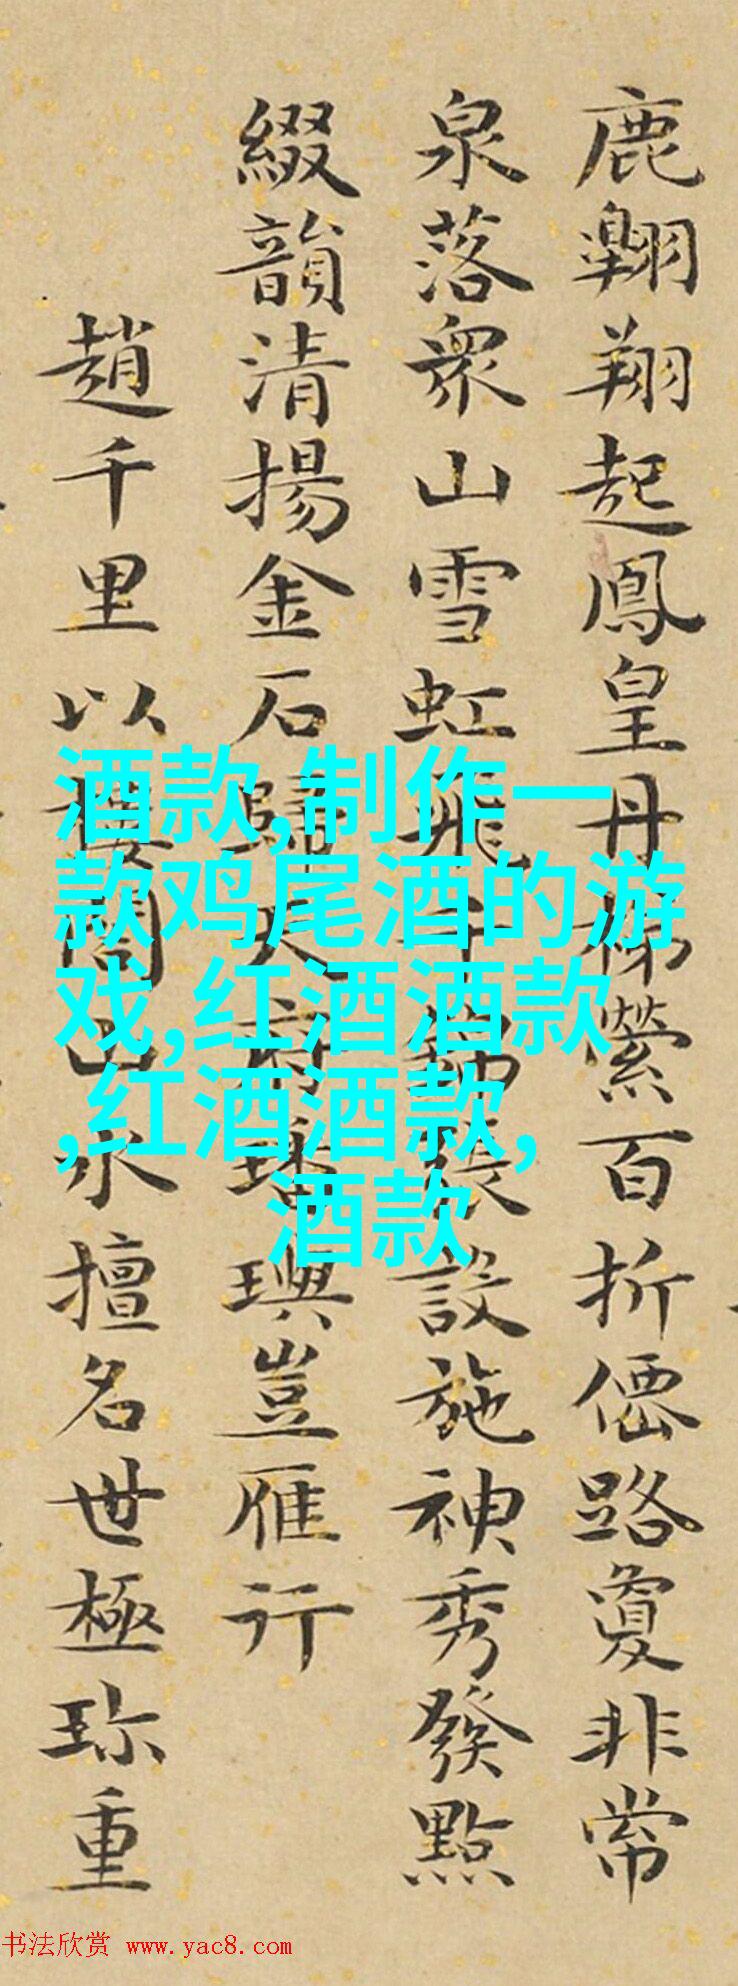 鹿翺翔起鳳皇丹梯縈百折僊路敻非常
泉落眾山雪虹飛千張設施神秀發點
綴韻清揚金石歸天府璠璵豈雁行
趙千里以樓閣山水擅名世極珍重
酒款,制作一
款鸡尾酒的游
戏,红酒酒款
,红酒酒款,
酒款
书法欣赏 www.yac8.com